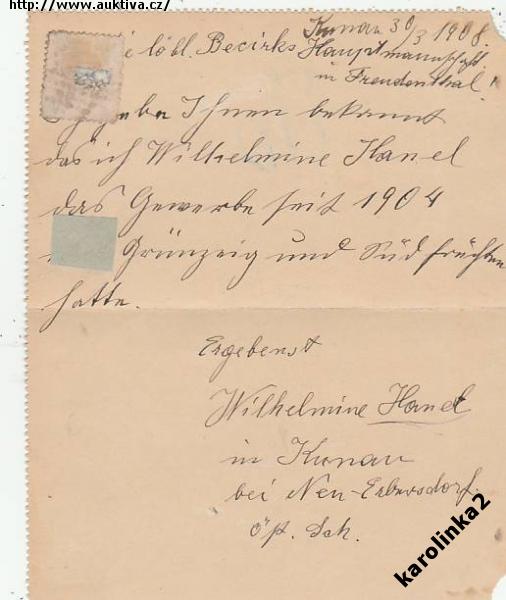 http://www.auktiva.cz/
Kunau 30/3 1908.
löbl. Becirks Hauptmannschaft
in Freudenthal!
gebe Ihnen bekannt
das ich Wilhelmine Hanel
das Gewerbe seit 1904
Grünzeig und Südfrüchten
hatte.
Ergebenst
Wilhelmine Hanel
in Kunau
bei Neu-Erbersdorf.
öst. Sch.
karolinka2